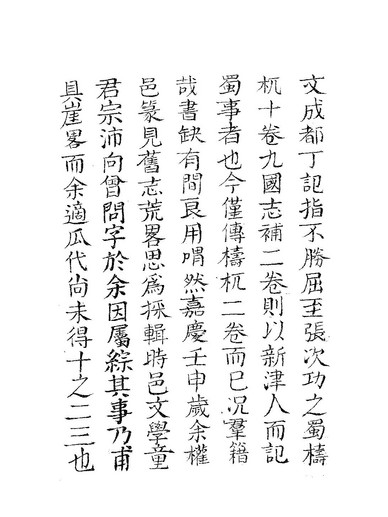 文成都丁記指不勝屈至張次功之蜀檮
杌十卷九國志補二卷則以新津人而記
蜀事者也今僅傳檮杌二卷而已况羣籍
哉書缺有間良用喟然嘉慶壬申歲余權
邑篆見舊志荒畧思爲採輯時邑文學童
君宗沛向曾問字於余因屬綜其事乃甫
具崖畧而余適瓜代尚未得十之二三也